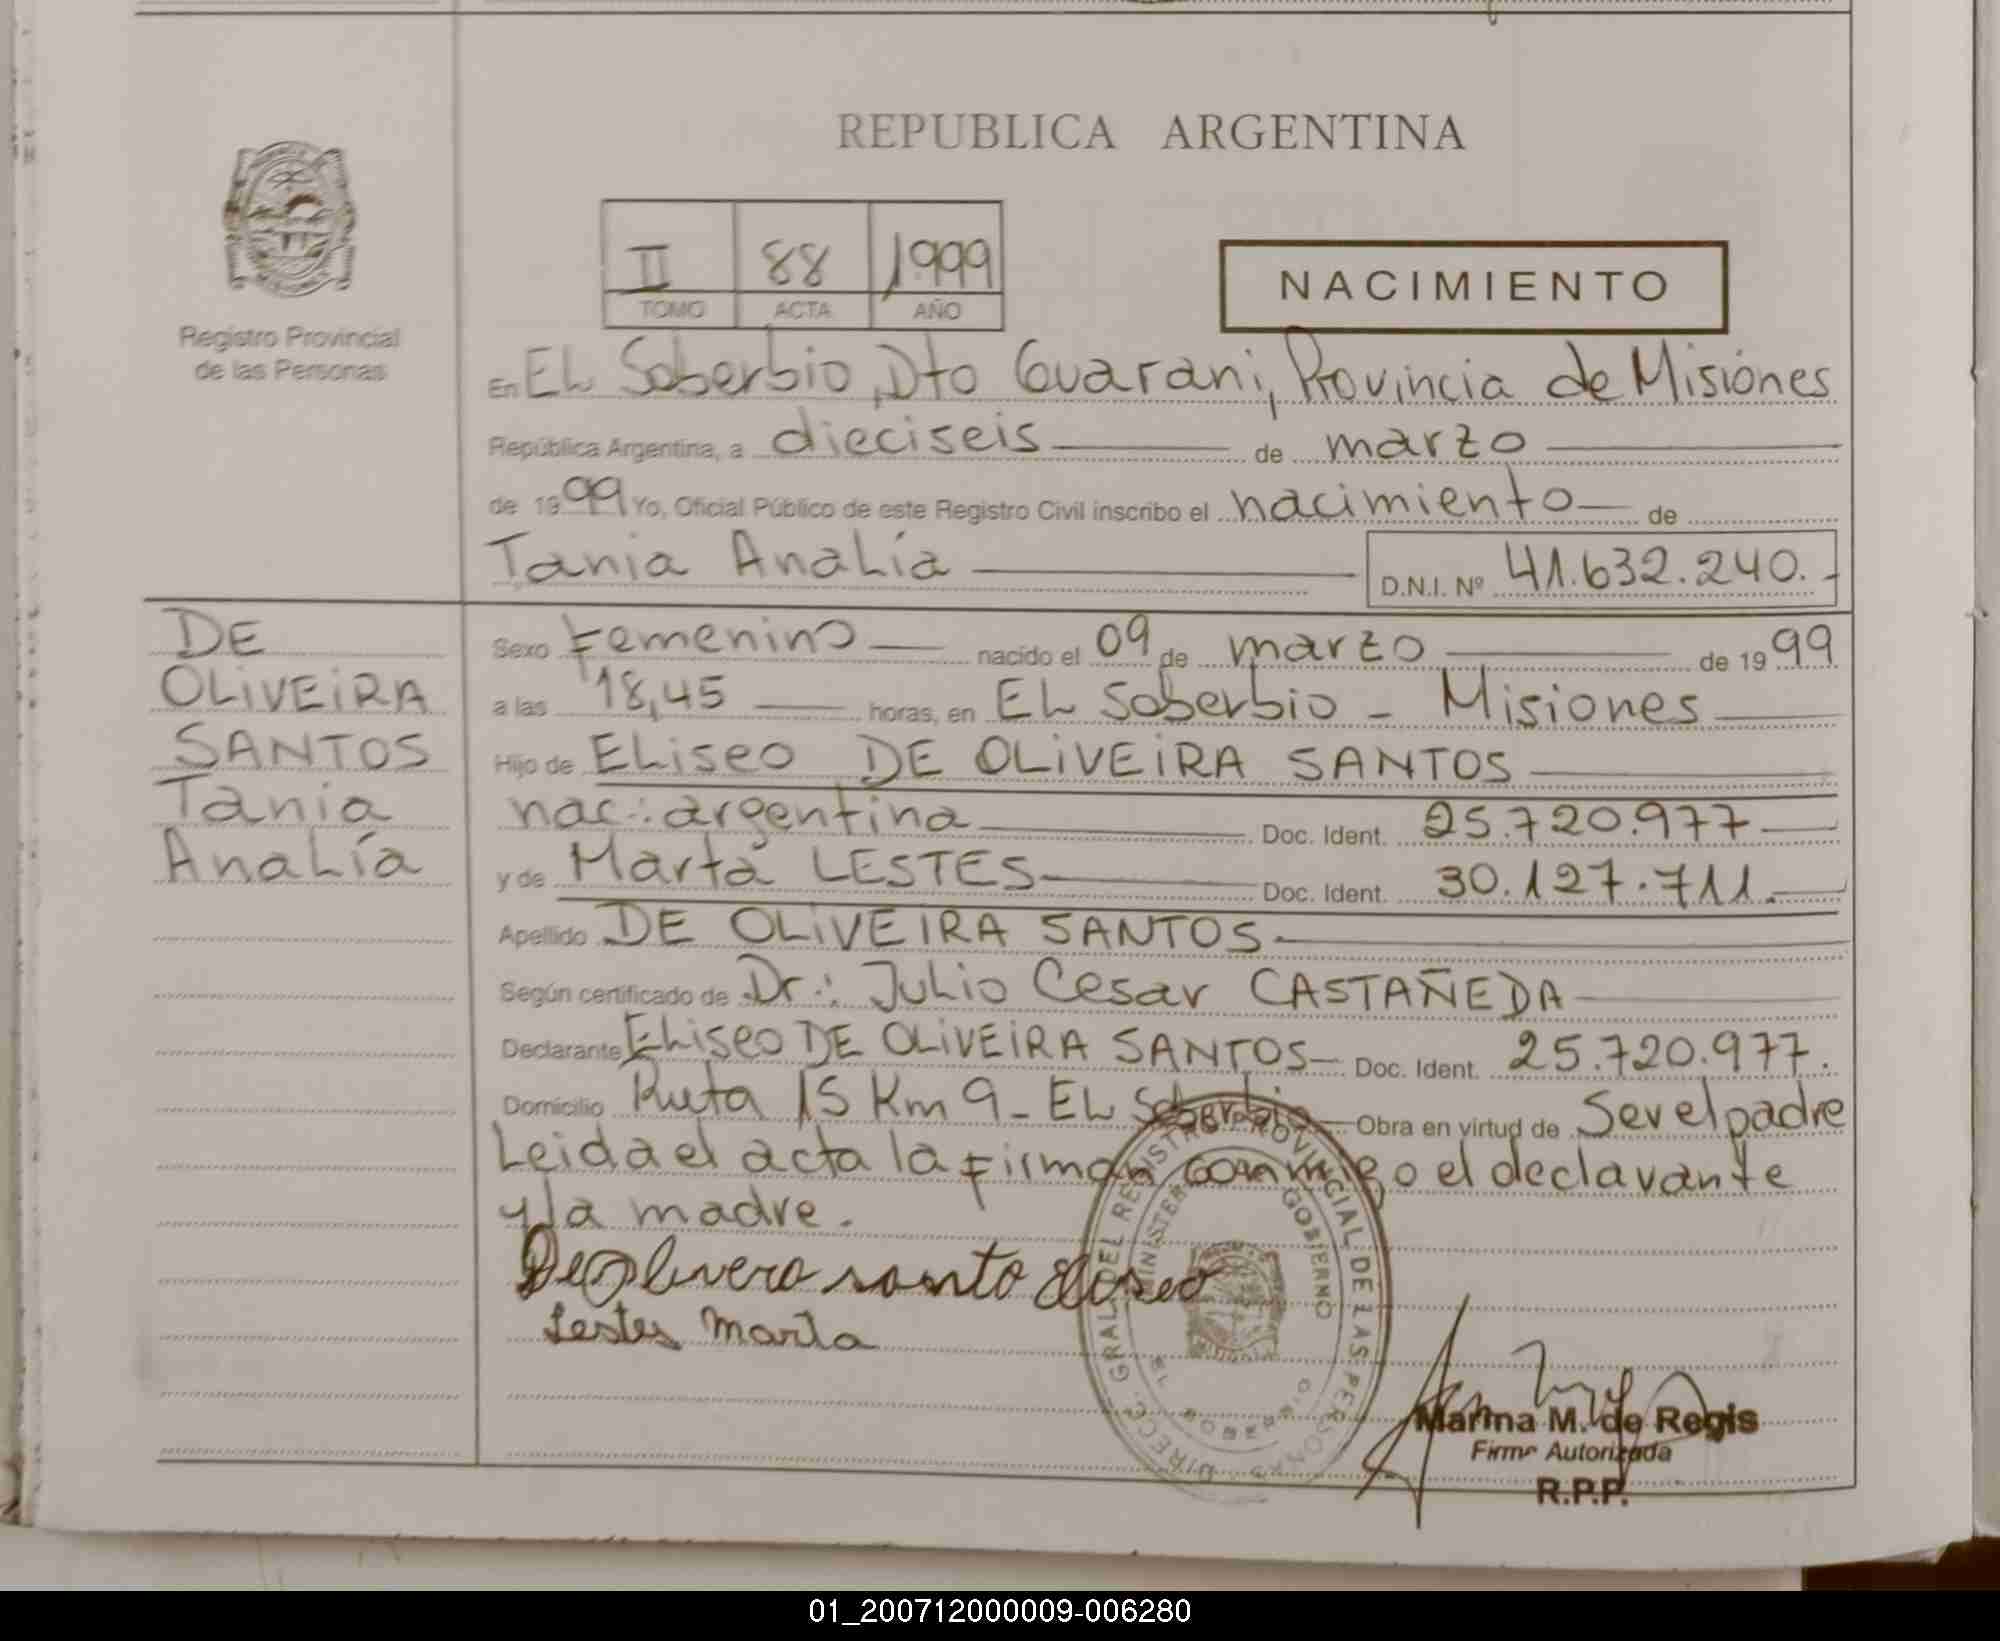 REPUBLICA ARGENTINA
II 88 1999
TOMO ACTA AÑO
NACIMIENTO
Registro Provincial
de las Personas
En EL Soberbio, Dto Guarani, Provincia de Misiones
República Argentina, a dieciseis de marzo
de 1999 Yo, Oficial Público de este Registro Civil inscribo el nacimiento de
Tania Analía D.N.I. Nº 41.632.240.-
DE
OLIVEIRA
SANTOS
Tania
Analía
Sexo Femenino nacido el 09 de marzo de 1999
a las 18,45 horas, en EL Soberbio - Misiones
Hijo de ELiseo DE OLIVEIRA SANTOS
nac.: argentina Doc. Ident. 25.720.977
y de Marta LESTES Doc. Ident. 30.127.711.
Apellido DE OLIVEIRA SANTOS
Según certificado de Dr.: Julio Cesar CASTAÑEDA
Declarante ELiseo DE OLIVEIRA SANTOS Doc. Ident. 25.720.977.
Domicilio Ruta 15 Km 9 - EL Soberbio Obra en virtud de Ser el padre
Leida el acta la firman conmigo el declarante
y la madre.
De Olivera santo Eliseo
Lestes Marta
DIRECC. GRAL. DEL REGISTRO PROVINCIAL DE LAS PERSONAS
MINISTERIO GOBIERNO
EL SOBERBIO
Marina M. de Regis
Firma Autorizada
R.P.P.
01_200712000009-006280